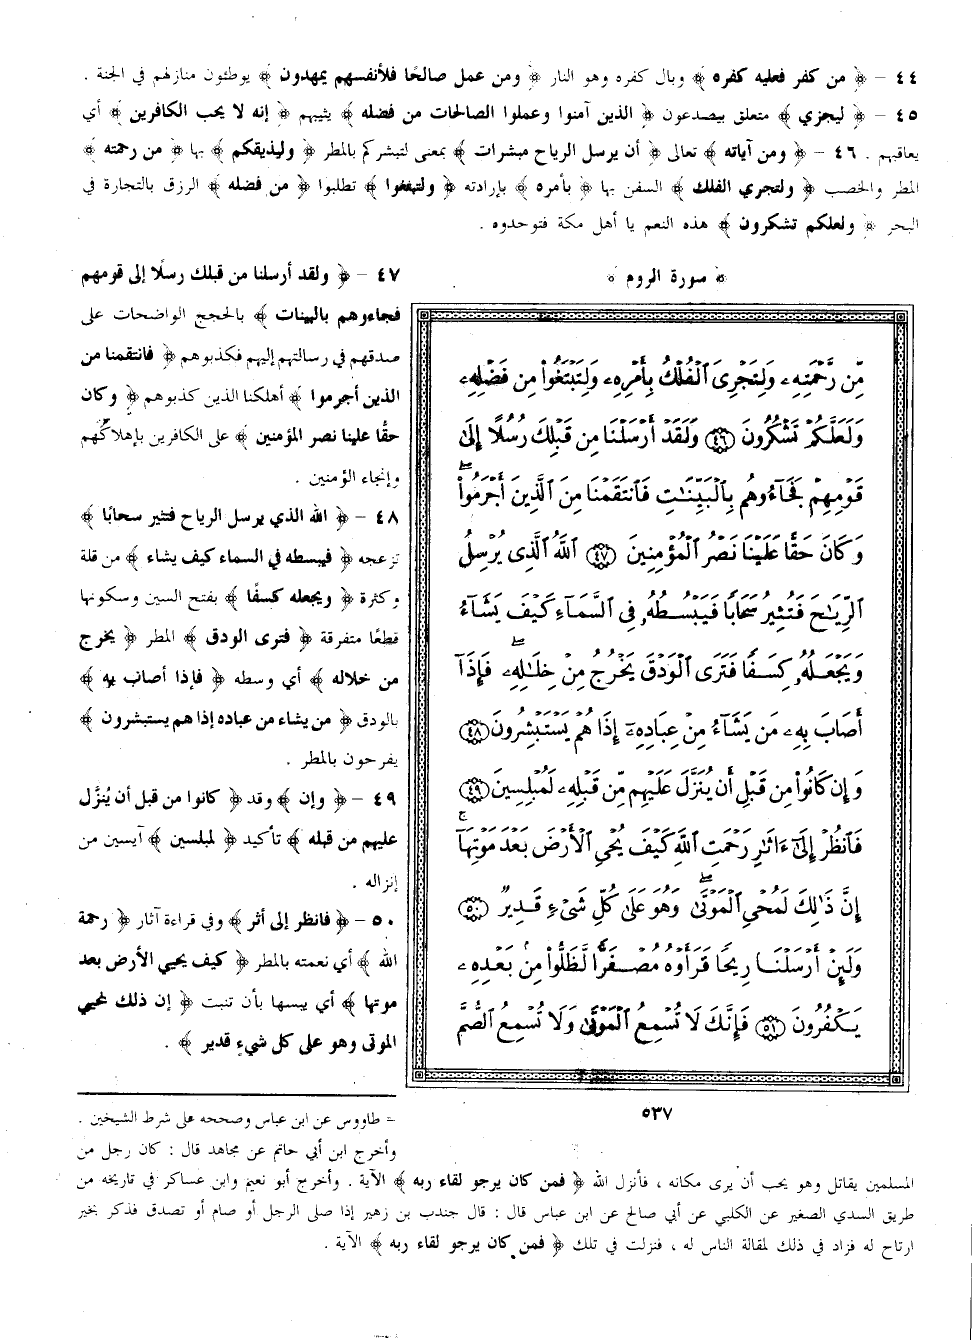 ٤٤ – ﴿ من كفر فعليه كفره ﴾ وبال كفره وهو النار ﴿ ومن عمل صالحًا فلأنفسهم يمهدون ﴾ يوطئون منازلهم في الجنة .
٤٥ – ﴿ ليجزي ﴾ متعلق بيصدعون ﴿ الذين آمنوا وعملوا الصالحات من فضله ﴾ يثيبهم ﴿ إنه لا يحب الكافرين ﴾ أي
يعاقبهم . ٤٦ – ﴿ ومن آياته ﴾ تعالى ﴿ أن يرسل الرياح مبشرات ﴾ بمعنى لتبشركم بالمطر ﴿ وليذيقكم ﴾ بها ﴿ من رحمته ﴾
المطر والخصب ﴿ ولتجري الفلك ﴾ السفن بها ﴿ بأمره ﴾ بإرادته ﴿ ولتبتغوا ﴾ تطلبوا ﴿ من فضله ﴾ الرزق بالتجارة في
البحر ﴿ ولعلكم تشكرون ﴾ هذه النعم يا أهل مكة فتوحدوه .
﴿ سورة الروم ﴾
مِّن رَّحْمَتِهِۦ وَلِتَجْرِىَ ٱلْفُلْكُ بِأَمْرِهِۦ وَلِتَبْتَغُوا۟ مِن فَضْلِهِۦ
وَلَعَلَّكُمْ تَشْكُرُونَ ٤٦ وَلَقَدْ أَرْسَلْنَا مِن قَبْلِكَ رُسُلًا إِلَىٰ
قَوْمِهِمْ فَجَآءُوهُم بِٱلْبَيِّنَـٰتِ فَٱنتَقَمْنَا مِنَ ٱلَّذِينَ أَجْرَمُوا۟ ۖ
وَكَانَ حَقًّا عَلَيْنَا نَصْرُ ٱلْمُؤْمِنِينَ ٤٧ ٱللَّهُ ٱلَّذِى يُرْسِلُ
ٱلرِّيَـٰحَ فَتُثِيرُ سَحَابًا فَيَبْسُطُهُۥ فِى ٱلسَّمَآءِ كَيْفَ يَشَآءُ
وَيَجْعَلُهُۥ كِسَفًا فَتَرَى ٱلْوَدْقَ يَخْرُجُ مِنْ خِلَـٰلِهِۦ ۖ فَإِذَآ
أَصَابَ بِهِۦ مَن يَشَآءُ مِنْ عِبَادِهِۦٓ إِذَا هُمْ يَسْتَبْشِرُونَ ٤٨
وَإِن كَانُوا۟ مِن قَبْلِ أَن يُنَزَّلَ عَلَيْهِم مِّن قَبْلِهِۦ لَمُبْلِسِينَ ٤٩
فَٱنظُرْ إِلَىٰٓ ءَاثَـٰرِ رَحْمَتِ ٱللَّهِ كَيْفَ يُحْىِ ٱلْأَرْضَ بَعْدَ مَوْتِهَآ ۚ
إِنَّ ذَٰلِكَ لَمُحْىِ ٱلْمَوْتَىٰ ۖ وَهُوَ عَلَىٰ كُلِّ شَىْءٍ قَدِيرٌ ٥٠
وَلَئِنْ أَرْسَلْنَا رِيحًا فَرَأَوْهُ مُصْفَرًّا لَّظَلُّوا۟ مِنۢ بَعْدِهِۦ
يَكْفُرُونَ ٥١ فَإِنَّكَ لَا تُسْمِعُ ٱلْمَوْتَىٰ وَلَا تُسْمِعُ ٱلصُّمَّ
٥٣٧
٤٧ – ﴿ ولقد أرسلنا من قبلك رسلًا إلى قومهم
فجاءوهم بالبينات ﴾ بالحجج الواضحات على
صدقهم في رسالتهم إليهم فكذبوهم ﴿ فانتقمنا من
الذين أجرموا ﴾ أهلكنا الذين كذبوهم ﴿ وكان
حقًا علينا نصر المؤمنين ﴾ على الكافرين بإهلاكهم
وإنجاء المؤمنين .
٤٨ – ﴿ الله الذي يرسل الرياح فتثير سحابًا ﴾
تزعجه ﴿ فيبسطه في السماء كيف يشاء ﴾ من قلة
وكثرة ﴿ ويجعله كسفًا ﴾ بفتح السين وسكونها
قطعًا متفرقة ﴿ فترى الودق ﴾ المطر ﴿ يخرج
من خلاله ﴾ أي وسطه ﴿ فإذا أصاب به ﴾
بالودق ﴿ من يشاء من عباده إذا هم يستبشرون ﴾
يفرحون بالمطر .
٤٩ – ﴿ وإن ﴾ وقد ﴿ كانوا من قبل أن يُنزَّل
عليهم من قبله ﴾ تأكيد ﴿ لمبلسين ﴾ آيسين من
إنزاله .
٥٠ – ﴿ فانظر إلى أثر ﴾ وفي قراءة آثار ﴿ رحمة
الله ﴾ أي نعمته بالمطر ﴿ كيف يحيي الأرض بعد
موتها ﴾ أي يبسها بأن تنبت ﴿ إن ذلك لمحيي
الموتى وهو على كل شيءٍ قدير ﴾ .
= طاووس عن ابن عباس وصححه على شرط الشيخين .
وأخرج ابن أبي حاتم عن مجاهد قال : كان رجل من
المسلمين يقاتل وهو يحب أن يرى مكانه ، فأنزل الله ﴿ فمن كان يرجو لقاء ربه ﴾ الآية . وأخرج أبو نعيم وابن عساكر في تاريخه من
طريق السدي الصغير عن الكلبي عن أبي صالح عن ابن عباس قال : قال جندب بن زهير إذا صلى الرجل أو صام أو تصدق فذكر بخير
ارتاح له فزاد في ذلك لمقالة الناس له ، فنزلت في تلك ﴿ فمن كان يرجو لقاء ربه ﴾ الآية .